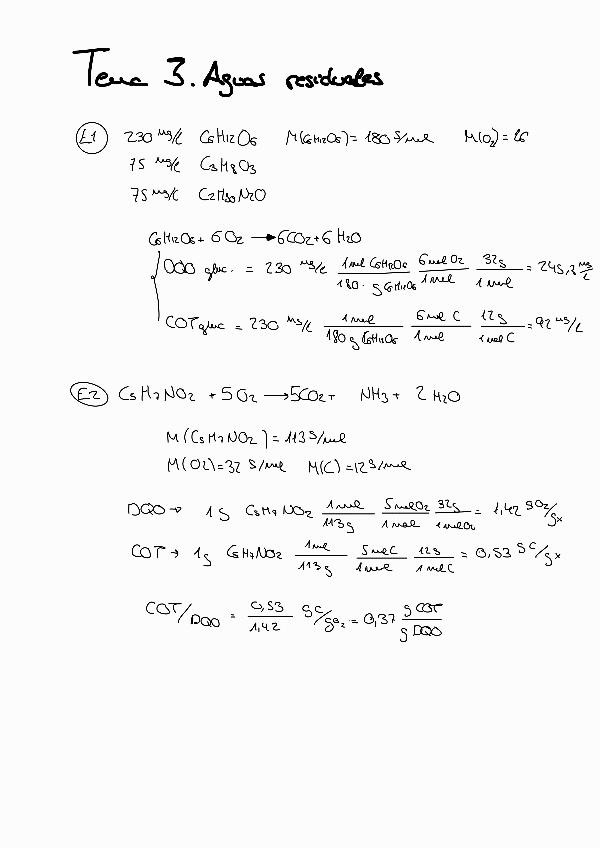 Tema 3. Aguas residuales
E1 230 mg/L C6H12O6 M(C6H12O6)= 180 g/mol M(O2)= 16
75 mg/L C3H8O3
75 mg/L C2H30N2O
C6H12O6 + 6O2 → 6CO2 + 6H2O
DQO gluc. = 230 mg/L 1mol C6H12O6/180 · g C6H12O6 6mol O2/1mol 32g/1mol = 245,3 mg/L
COT gluc = 230 mg/L 1mol/180g C6H12O6 6mol C/1mol 12g/1mol C = 92 mg/L
E2 C5H7NO2 + 5O2 → 5CO2 + NH3 + 2H2O
M(C5H7NO2) = 113 g/mol
M(O2)=32 g/mol M(C)=12 g/mol
DQO → 1g C5H7NO2 1mol/113g 5molO2/1mol 32g/1molO2 = 1,42 gO2/gx
COT → 1g C5H7NO2 1mol/113g 5molC/1mol 12g/1molC = 0,53 gC/gx
COT/DQO = 0,53/1,42 gC/gO2 = 0,37 g COT/g DQO